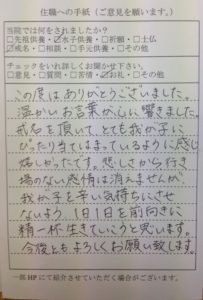 住職への手紙（ご意見を願います。）
当院では何をされましたか？
□先祖供養・☑水子供養・□祈願・□土仏
☑戒名・□相談・□手元供養・□その他
チェックをいれ詳しくお聞かせ下さい。
□意見・□質問・□苦情・☑お礼・□その他
この度はありがとうございました。
温かいお言葉が心に響きました。
戒名を頂いて、とても我が子に
ぴったり当てはまっているように感じ
嬉しかったです。悲しさから行き
場のない感情は消えませんが、
我が子を辛い気持ちにさせ
ないよう、1日1日を前向きに
精一杯生きていこうと思います。
今後ともよろしくお願い致します。
一部HPにて紹介させていただく場合がございます。